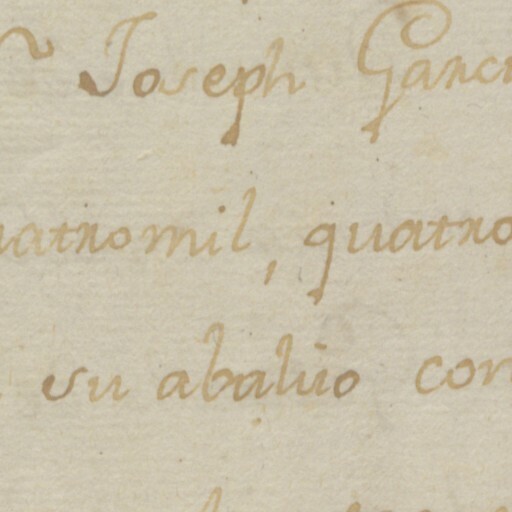 Joseph Garci
uatromil, quatro
su abalúo con